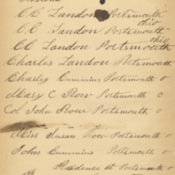 C C Landon Portsmouth
Ohio
C C Landon Portsmouth
Ohio
CC Landon Portsmouth
Charles Landon Portsmouth
Charley Cummins Portsmouth O
Mary C Row Portsmouth O
Col John Row Portsmouth
Mrs Susan Row Portsmouth O
John Cummins Portsmouth O
Residence at Portsmouth O